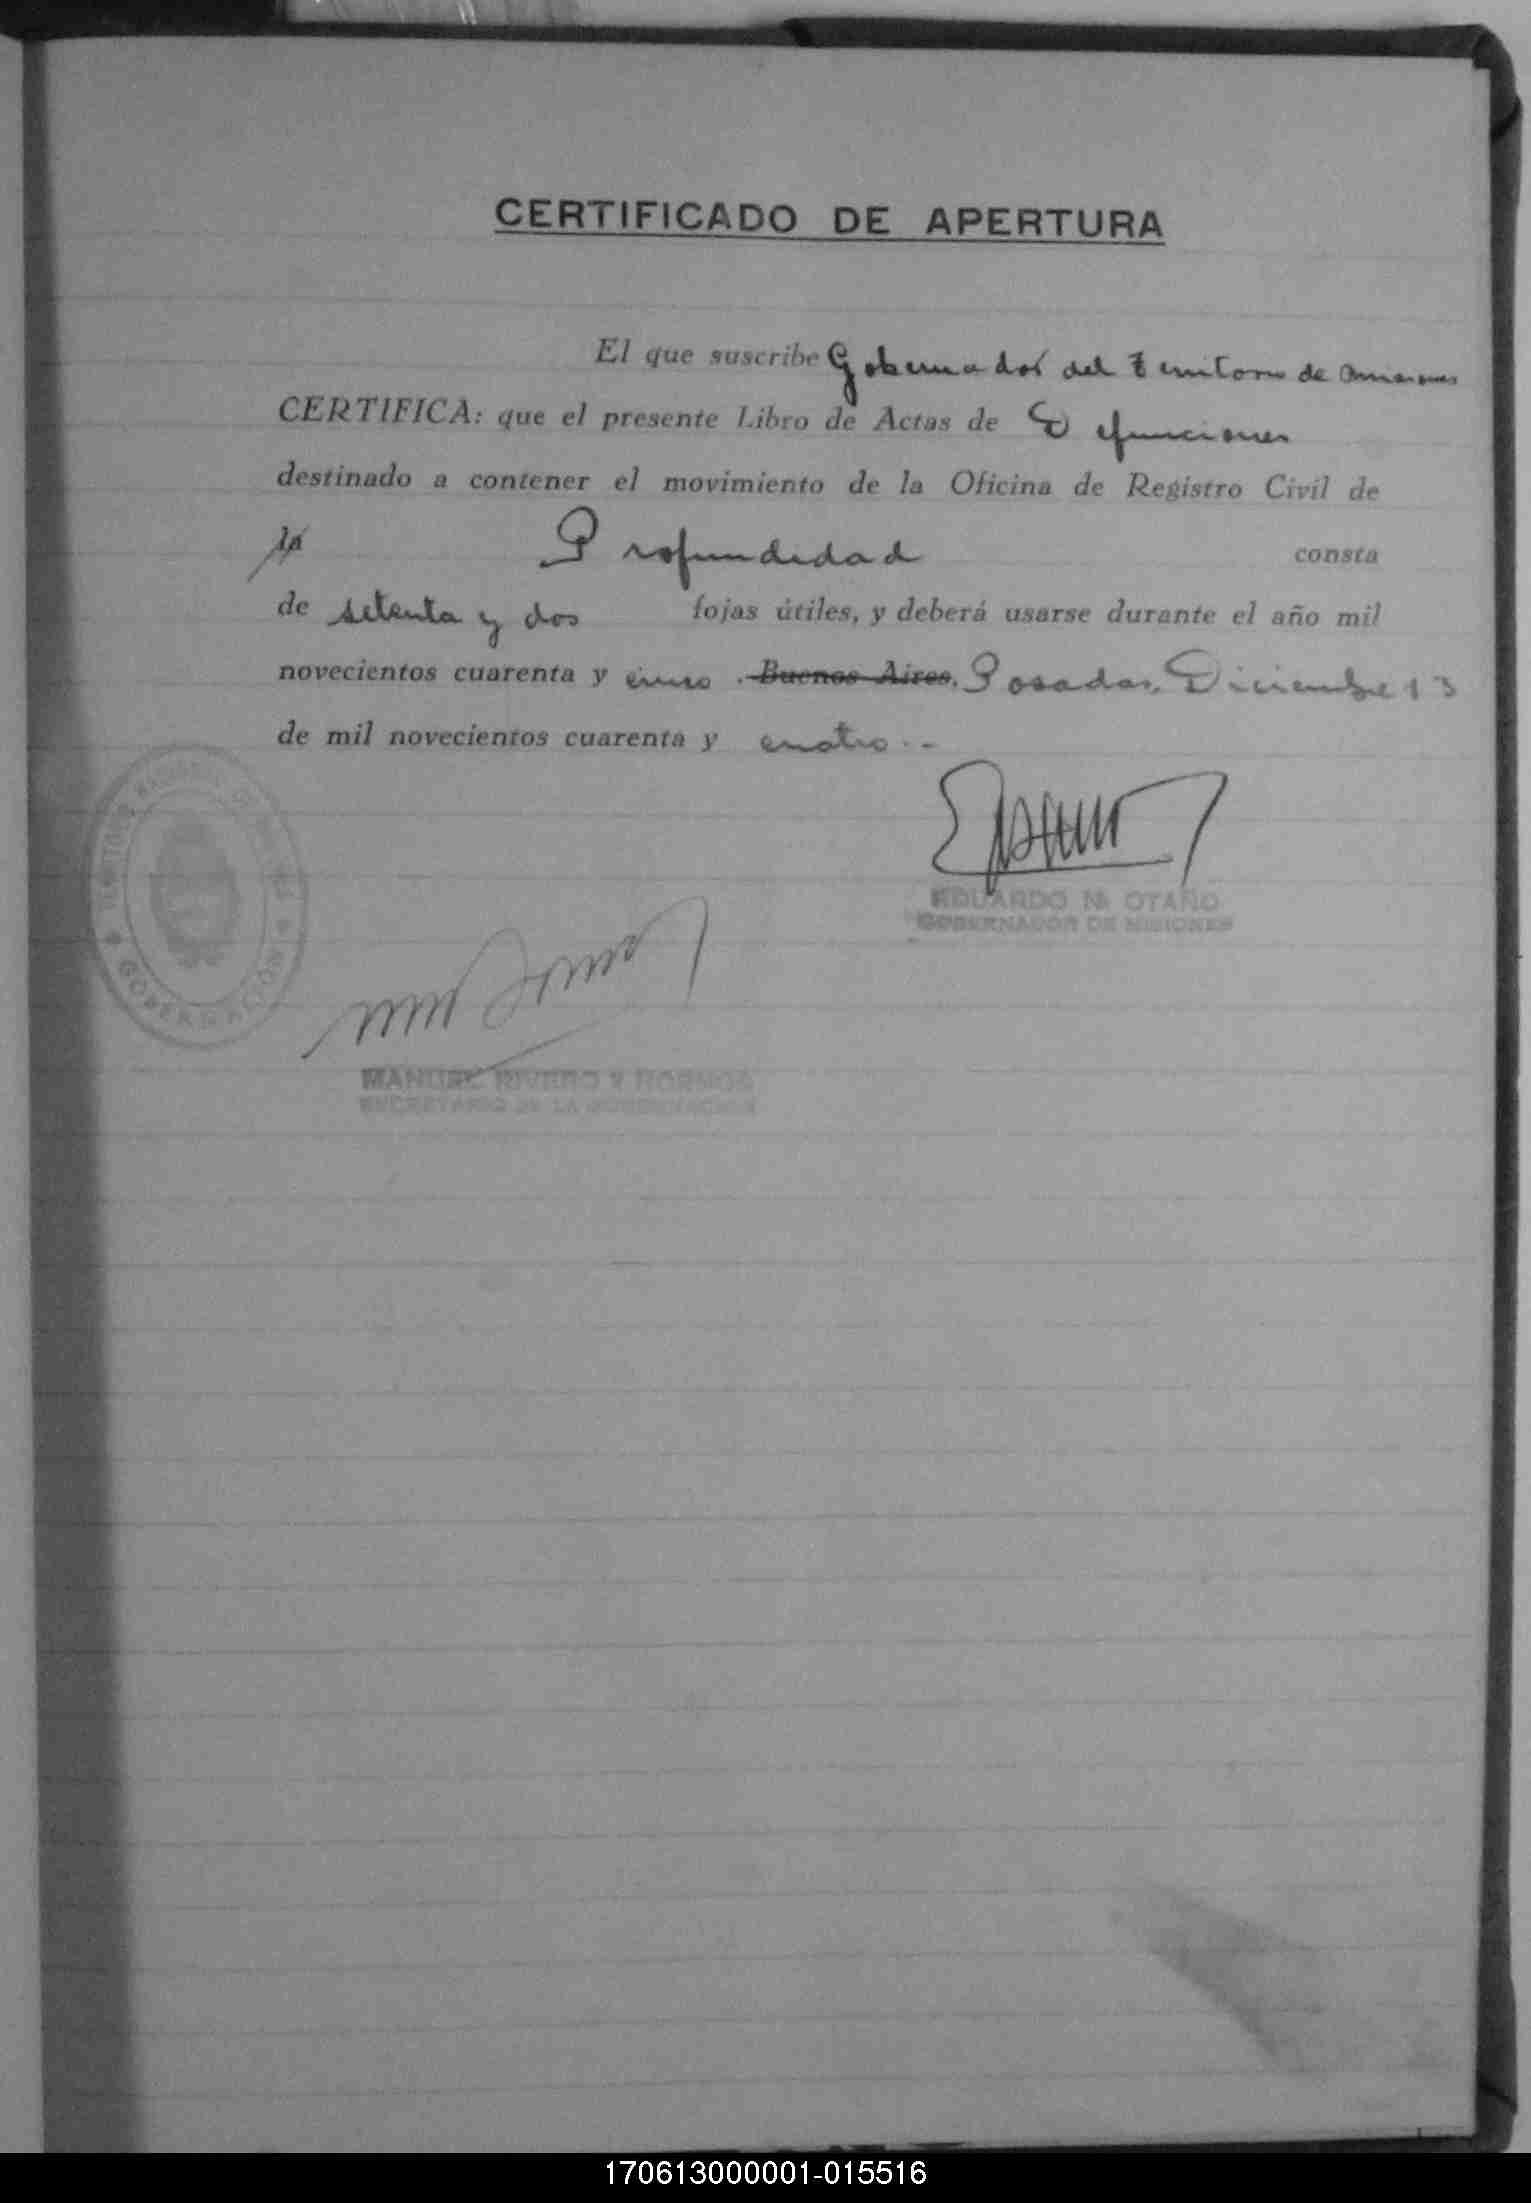 CERTIFICADO DE APERTURA
El que suscribe Gobernador del Territorio de Misiones
CERTIFICA: que el presente Libro de Actas de Defunciones
destinado a contener el movimiento de la Oficina de Registro Civil de
la Profundidad consta
de setenta y dos fojas útiles, y deberá usarse durante el año mil
novecientos cuarenta y cinco . Buenos Aires, Posadas, Diciembre 13
de mil novecientos cuarenta y cuatro.-
EDUARDO N. OTAÑO
GOBERNADOR DE MISIONES
GOBERNACION
MANUEL RIVERO Y HORNOS
SECRETARIO DE LA GOBERNACION
170613000001-015516